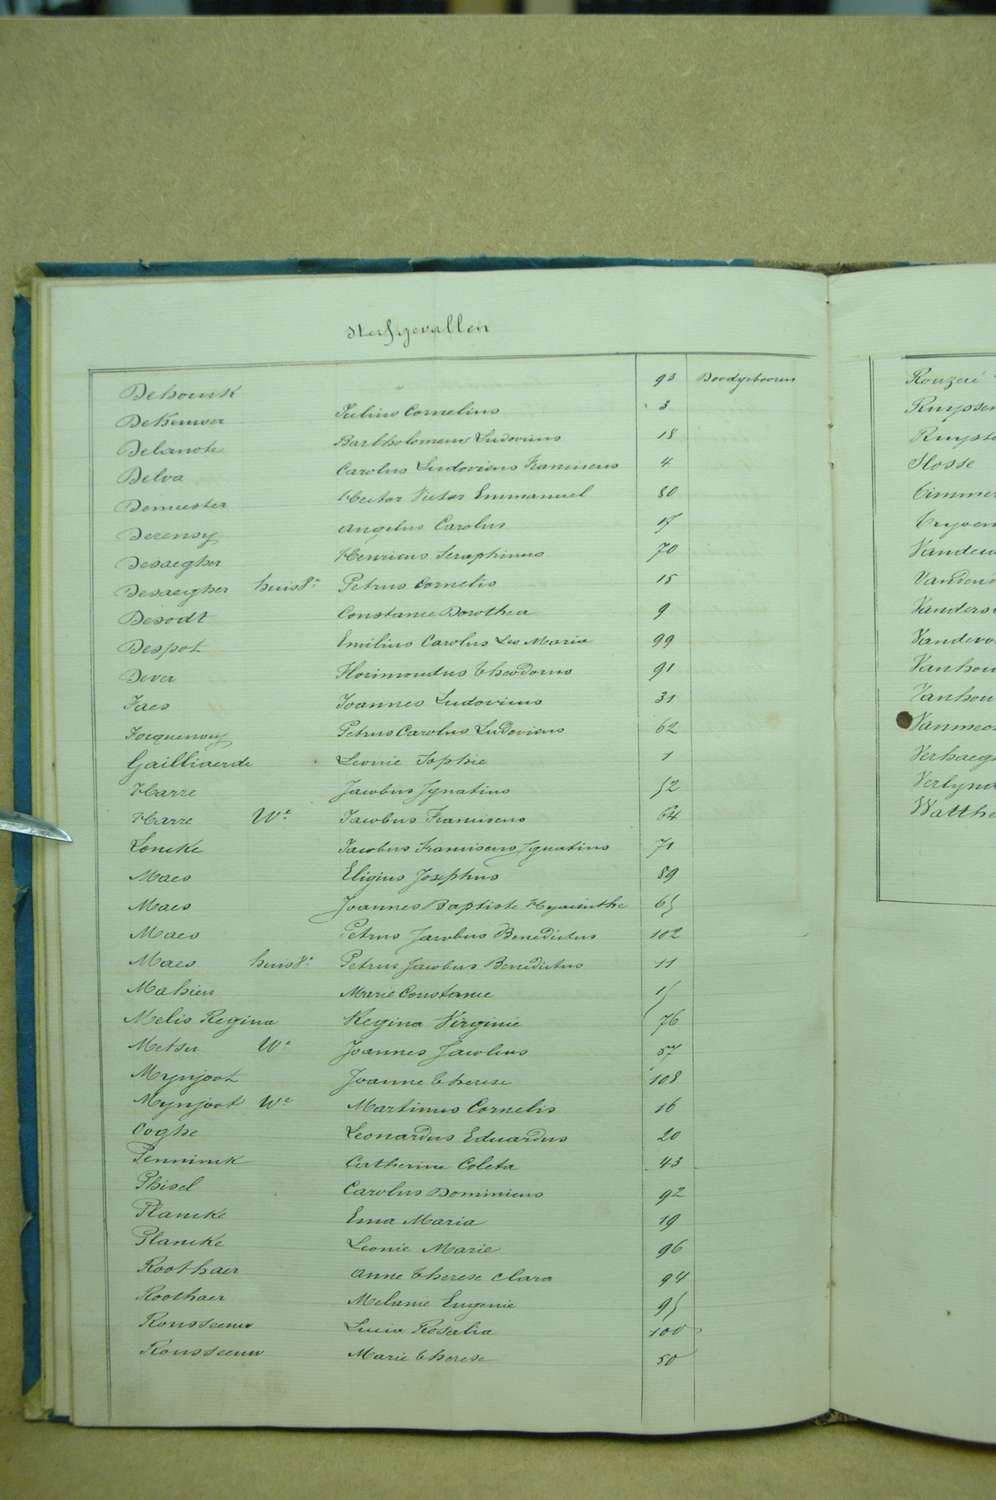 Sterfgevallen
Dehouck 93 Doodgeboren
Dekeuwer Julius Cornelius 3
Delanote Bartholomeus Ludovicus 18
Delva Carolus Ludovicus Franciscus 4
Demuster Hector Victor Emmanuel 80
Derensy Angelus Carolus 17
Desaegher Henricus Seraphinus 70
Desaegher huisv.e Petrus Cornelis 15
Desodt Constance Dorothea 9
Despot Emilius Carolus Leo Maria 99
Dever Florimondus Theodorus 91
Faes Joannes Ludovicus 31
Focquenouy Petrus Carolus Ludovicus 62
Gailliaerde Leonie Sophie 1
Harre Jacobus Ignatius 52
Harre We Jacobus Franciscus 64
Loncke Jacobus Franciscus Ignatius 71
Maes Eligius Josephus 89
Maes Joannes Baptiste Hyacinthe 65
Maes Petrus Jacobus Benedictus 102
Maes huisv.e Petrus Jacobus Benedictus 11
Mahieu Marie Constance 15
Melis Regina Regina Virginie 76
Metsu We Joannes Jacobus 57
Mynjoot Joanne Therese 108
Mynjoot We Martinus Cornelis 16
Coghe Leonardus Eduardus 20
Penninck Catherine Coleta 43
Phisel Carolus Dominicus 92
Plancke Ema Maria 19
Plancke Leonie Marie 96
Roothaer Anne Therese Clara 94
Roothaer Melanie Eugenie 95
Rousseeuw Lucia Rosalia 100
Rousseeuw Marie Therese 50
Rouzeré
Ruyssen
Ruyste
Slosse
Timmer
Tryoen
Vanden
Vandend
Vanders
Vandevo
Vanhou
Vanhou
Vanmeo
Verhaeg
Verlynd
Watthe